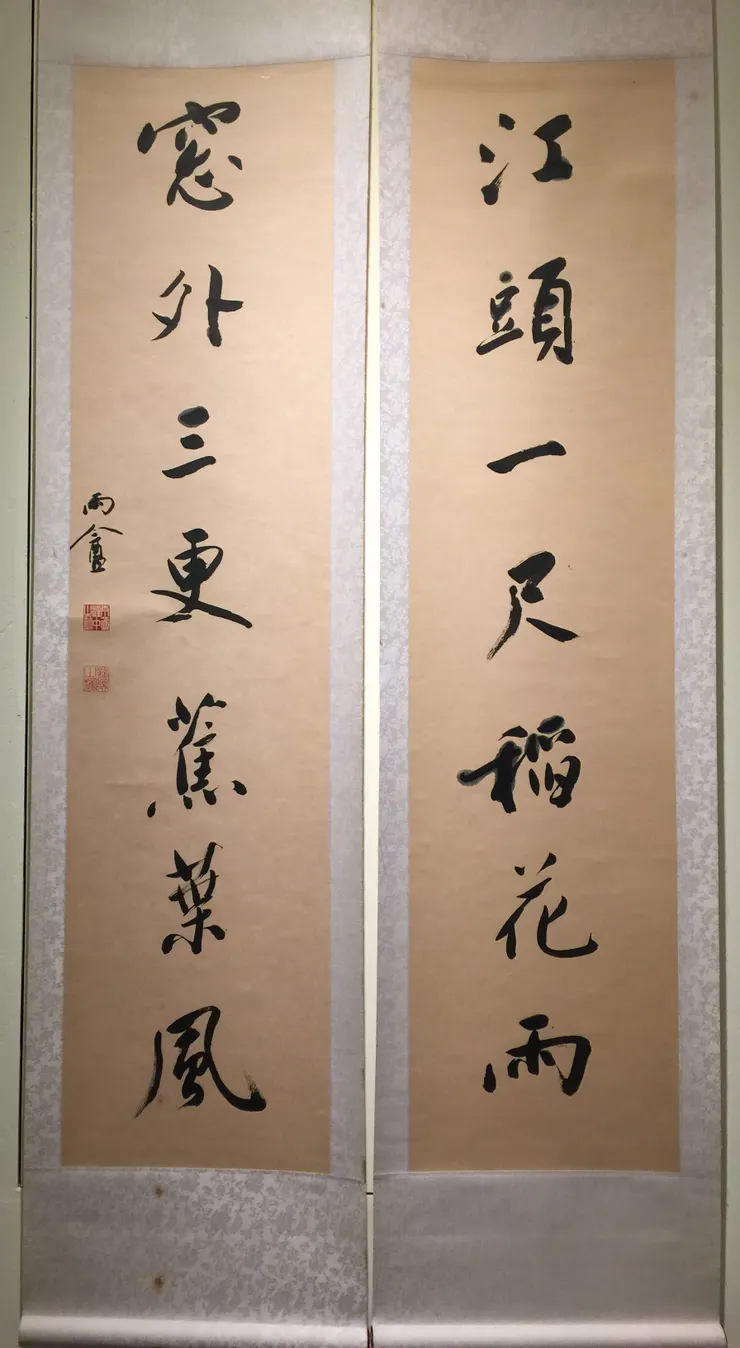 江頭一尺稻花雨
窓外三更蕉葉風
雨盦